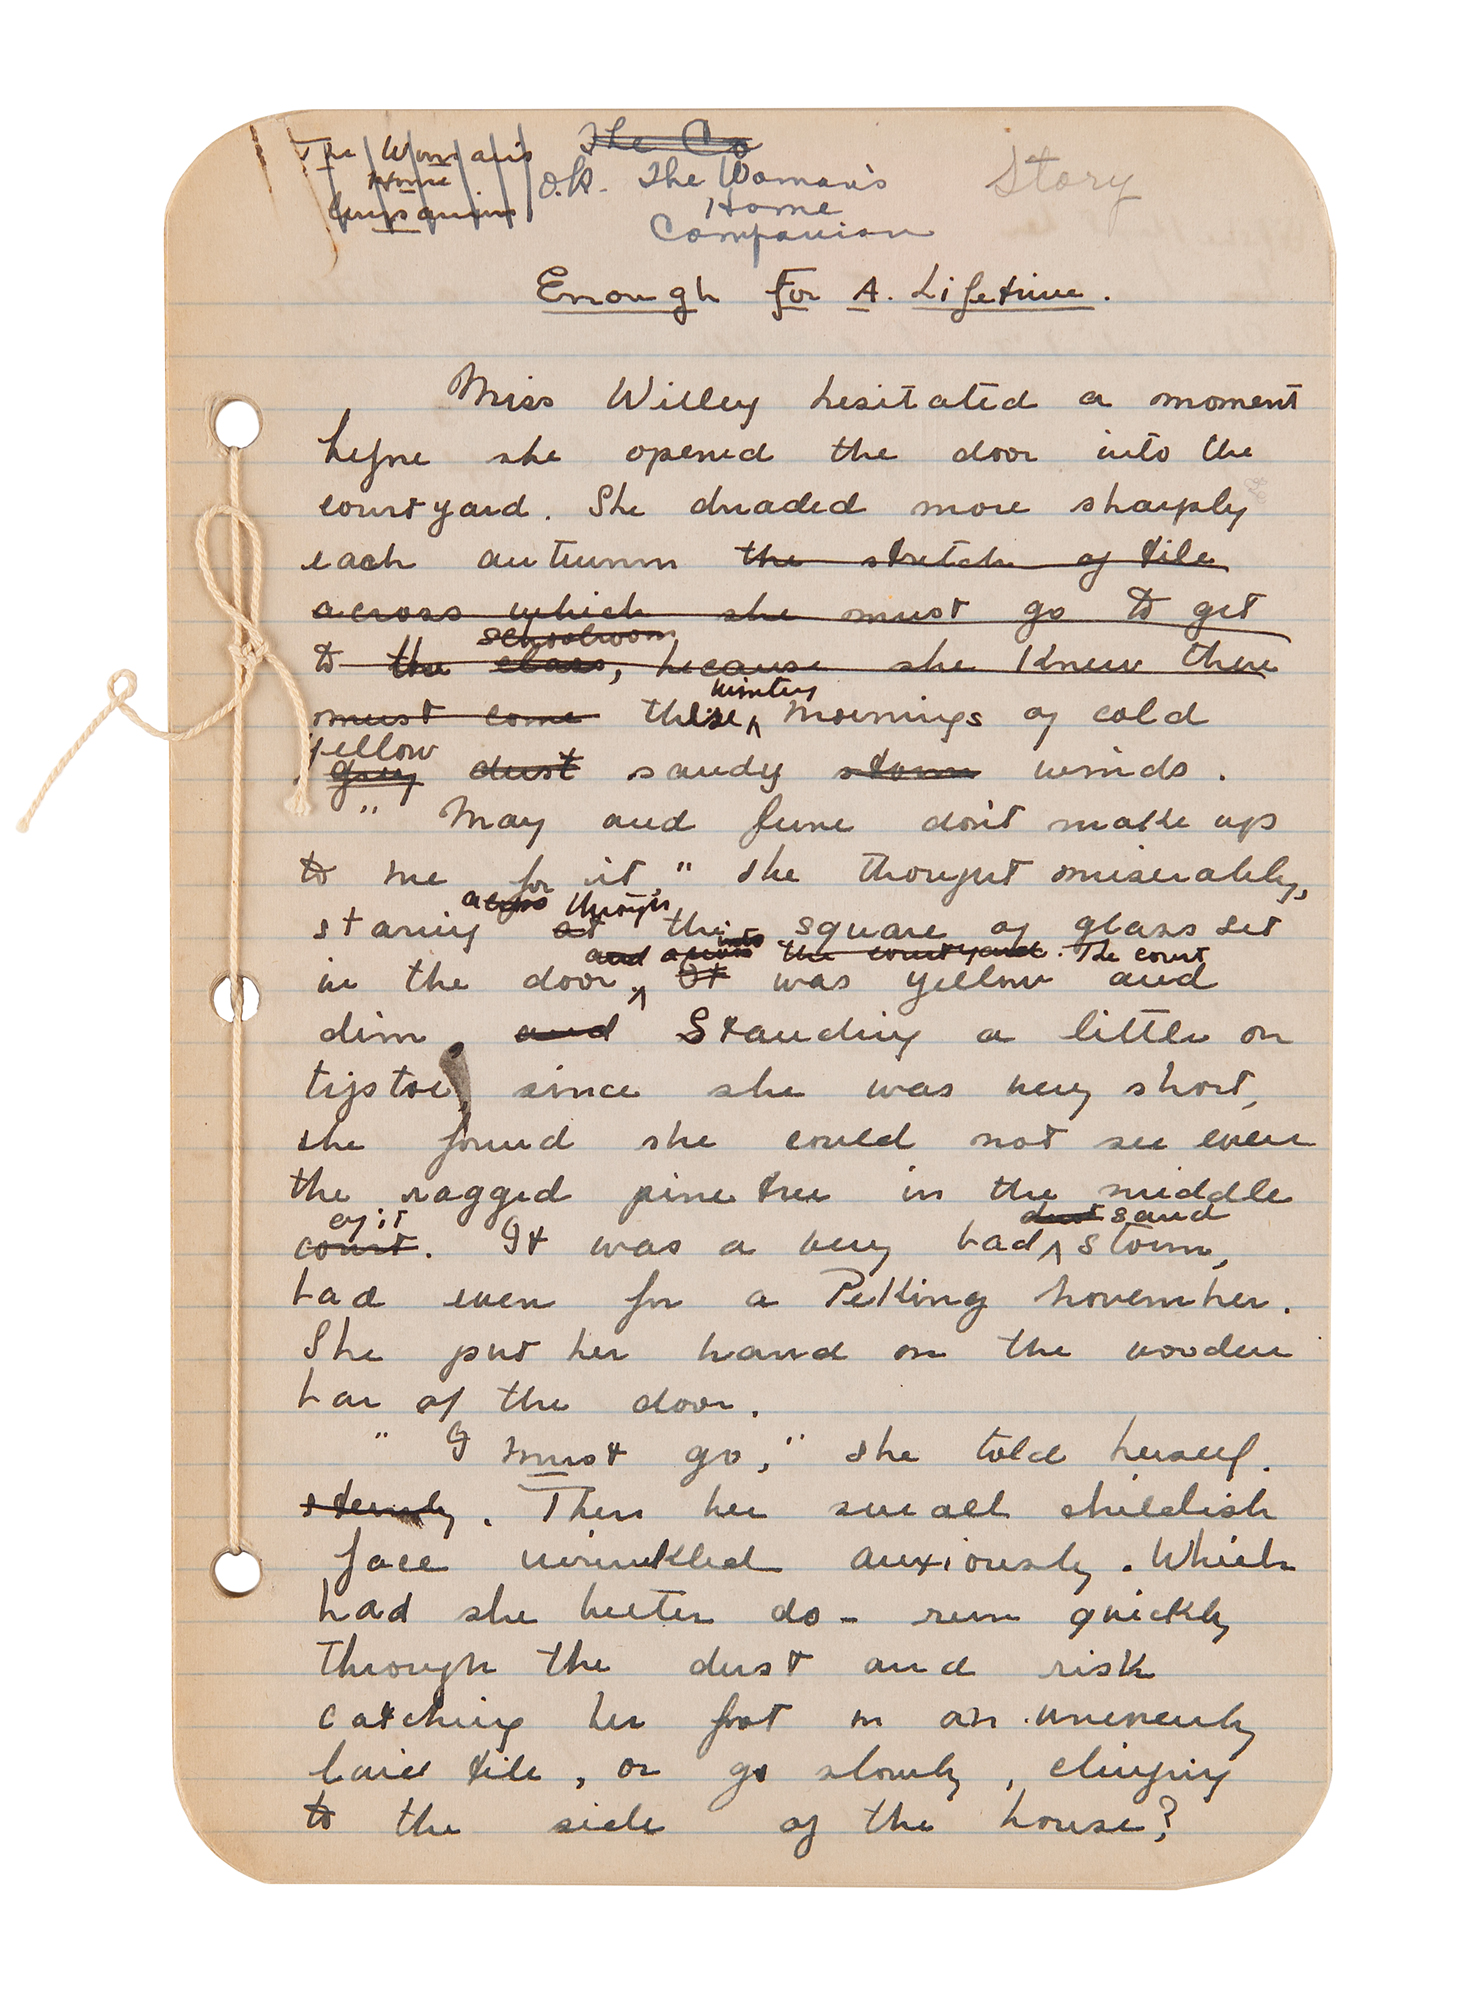 The Woman's
Home
Companion
The Co
O.K. The Woman's
Home
Companion
Story
Enough For A. Lifetime.
Miss Willey hesitated a moment
before she opened the door into the
courtyard. She dreaded more sharply
each autumn the stretch of tile
across which she must go to get
schoolroom
to the class, because she knew there
wintry
must come these ^ mornings of cold
yellow
grey dust sandy storm winds.
" May and June don't make up
to me for it," she thought miserably,
across through
staring at the square of glass set
and across into the courtyard. The court
in the door, ^ It was yellow and
dim. and Standing a little on
tiptoe, since she was very short,
she found she could not see even
the ragged pine tree in the middle
of it dust sand
court. It was a very bad ^ storm,
bad even for a Peking November.
She put her hand on the wooden
bar of the door.
" I must go," she told herself.
sternly. Then her small childish
face wrinkled anxiously. Which
had she better do - run quickly
through the dust and risk
catching her foot in an unevenly
laid tile, or go slowly, clinging
to the side of the house?